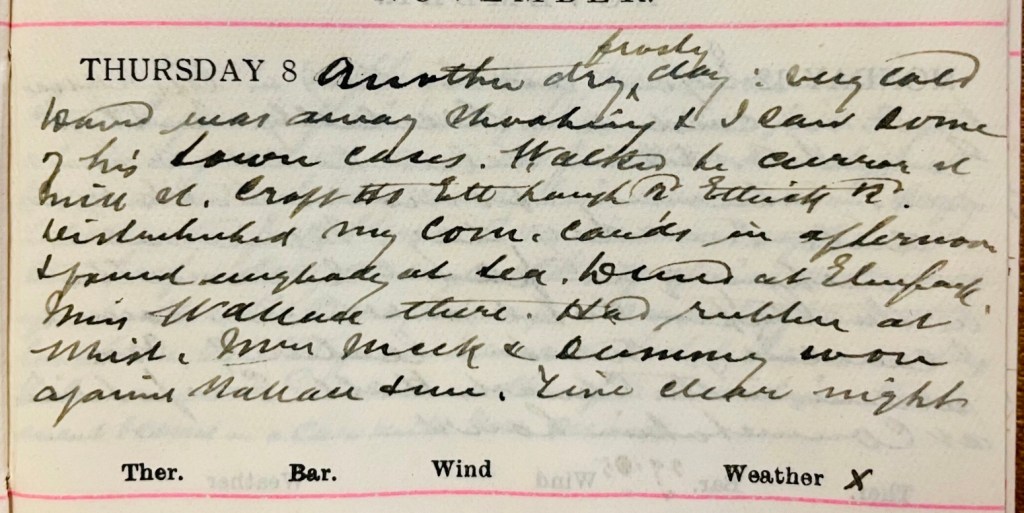 NOVEMBER.
frosty
THURSDAY 8 Another dry, day : very cold
David was away thrashing & I saw some
of his town cases. Walked to Curror st
Mill st. Croft Ho Ett haugh Rd Ettrick Rd.
Distributed my Com. cards in afternoon
& found everybody at tea. Dined at Elmpark.
Miss Wallace there. Had rubber at
Whist. Miss Meek & Dummy won
against Wallace & me. Fine clear night
Ther. Bar. Wind Weather x